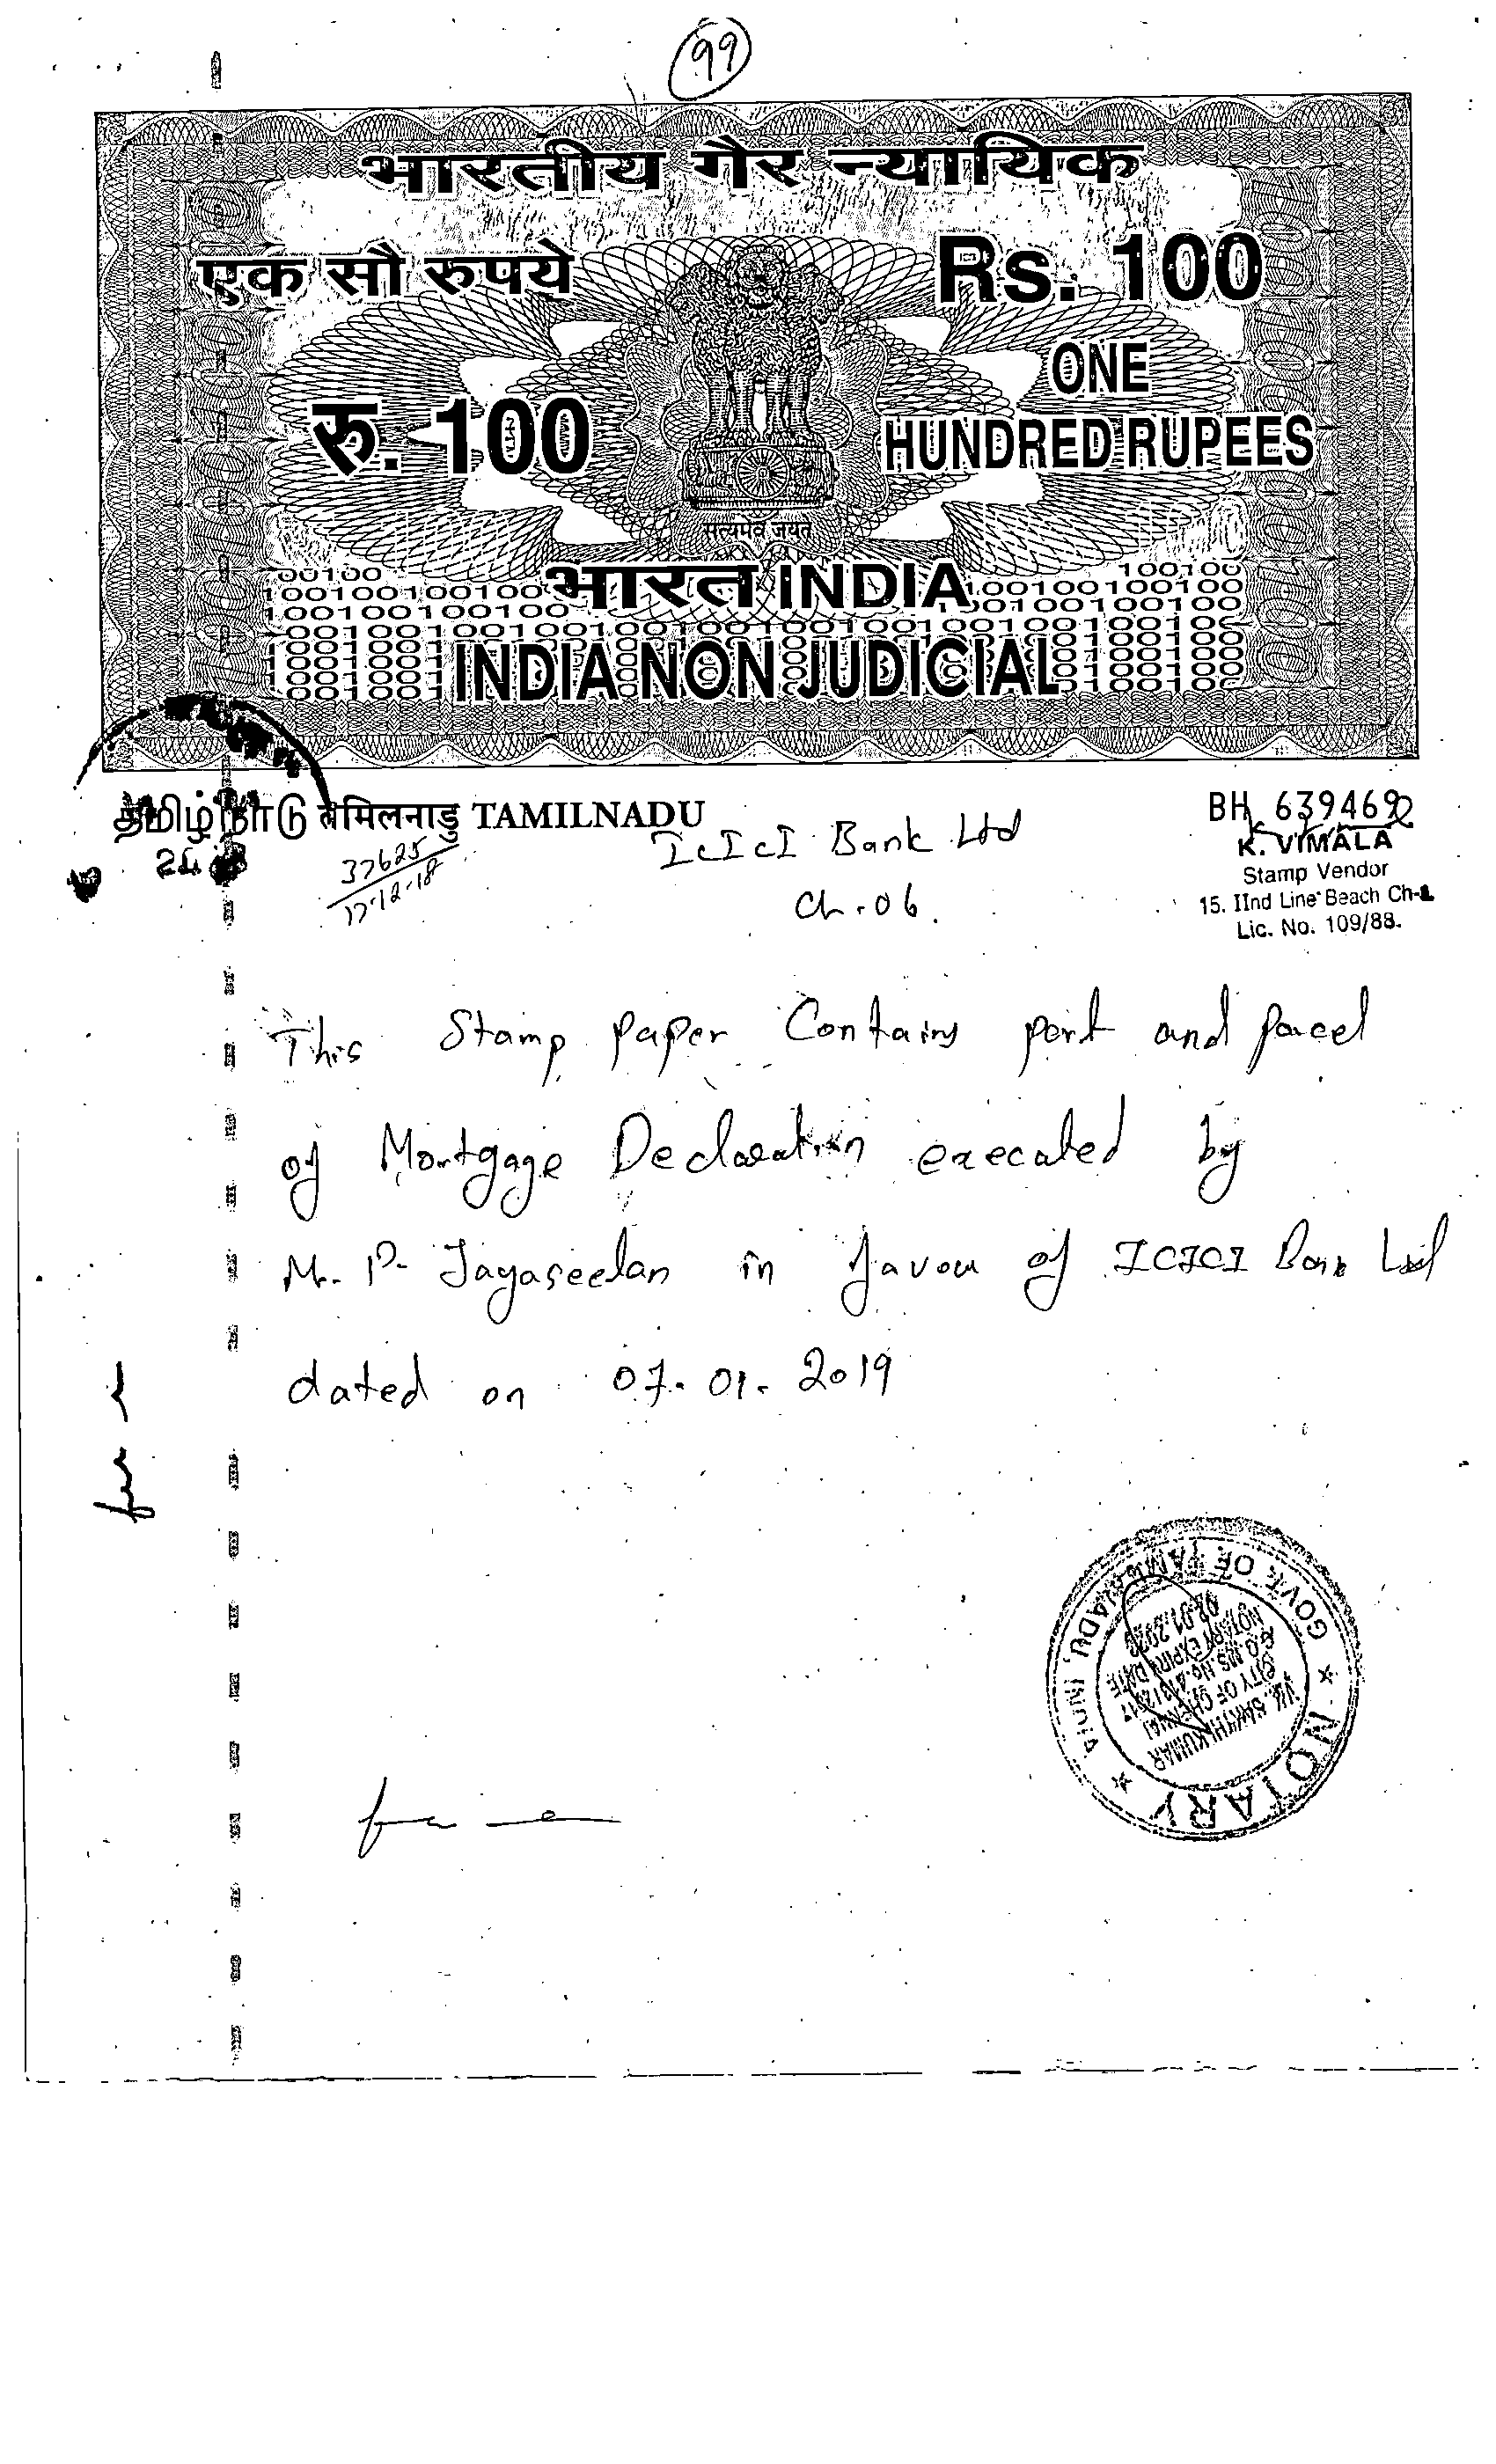 99
भारतीय गैर न्यायिक
एक सौ रुपये
Rs. 100
रु. 100
ONE
HUNDRED RUPEES
सत्यमेव जयते
भारत INDIA
INDIA NON JUDICIAL
தமிழ்நாடு तमिलनाडु TAMILNADU
BH 639469
37625
17-12-18
ICICI Bank Ltd
Ch-06.
K. VIMALA
Stamp Vendor
15. IInd Line Beach Ch-1
Lic. No. 109/88.
This Stamp paper Contains part and parcel
of Mortgage Declaration executed by
Mr. P. Jayaseelan in favou of ICICI Bank Ltd
dated on 07-01-2019
GOVT. OF TAMILNADU, INDIA
NOTARY
CITY OF CHENNAI
NOTARY EXPIRY DATE